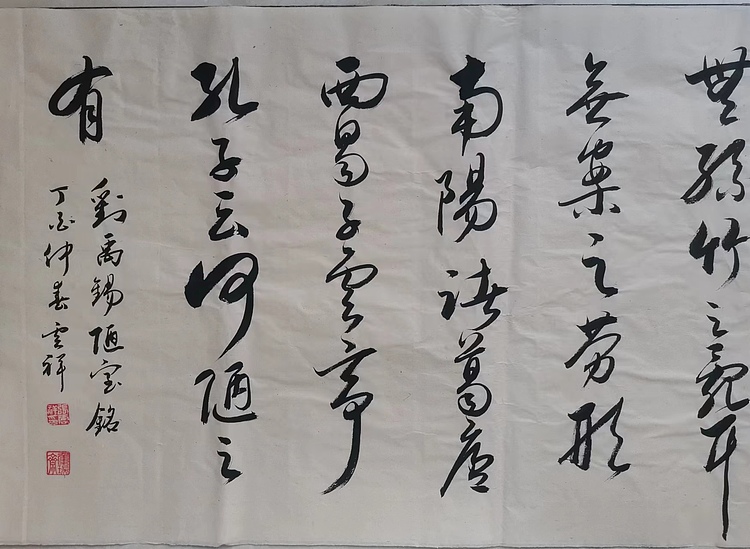 無絲竹之亂耳
無案之勞形
南陽諸葛廬
西蜀子雲亭
孔子云何陋之
有
劉禹錫陋室銘
丁酉仲春雲祥